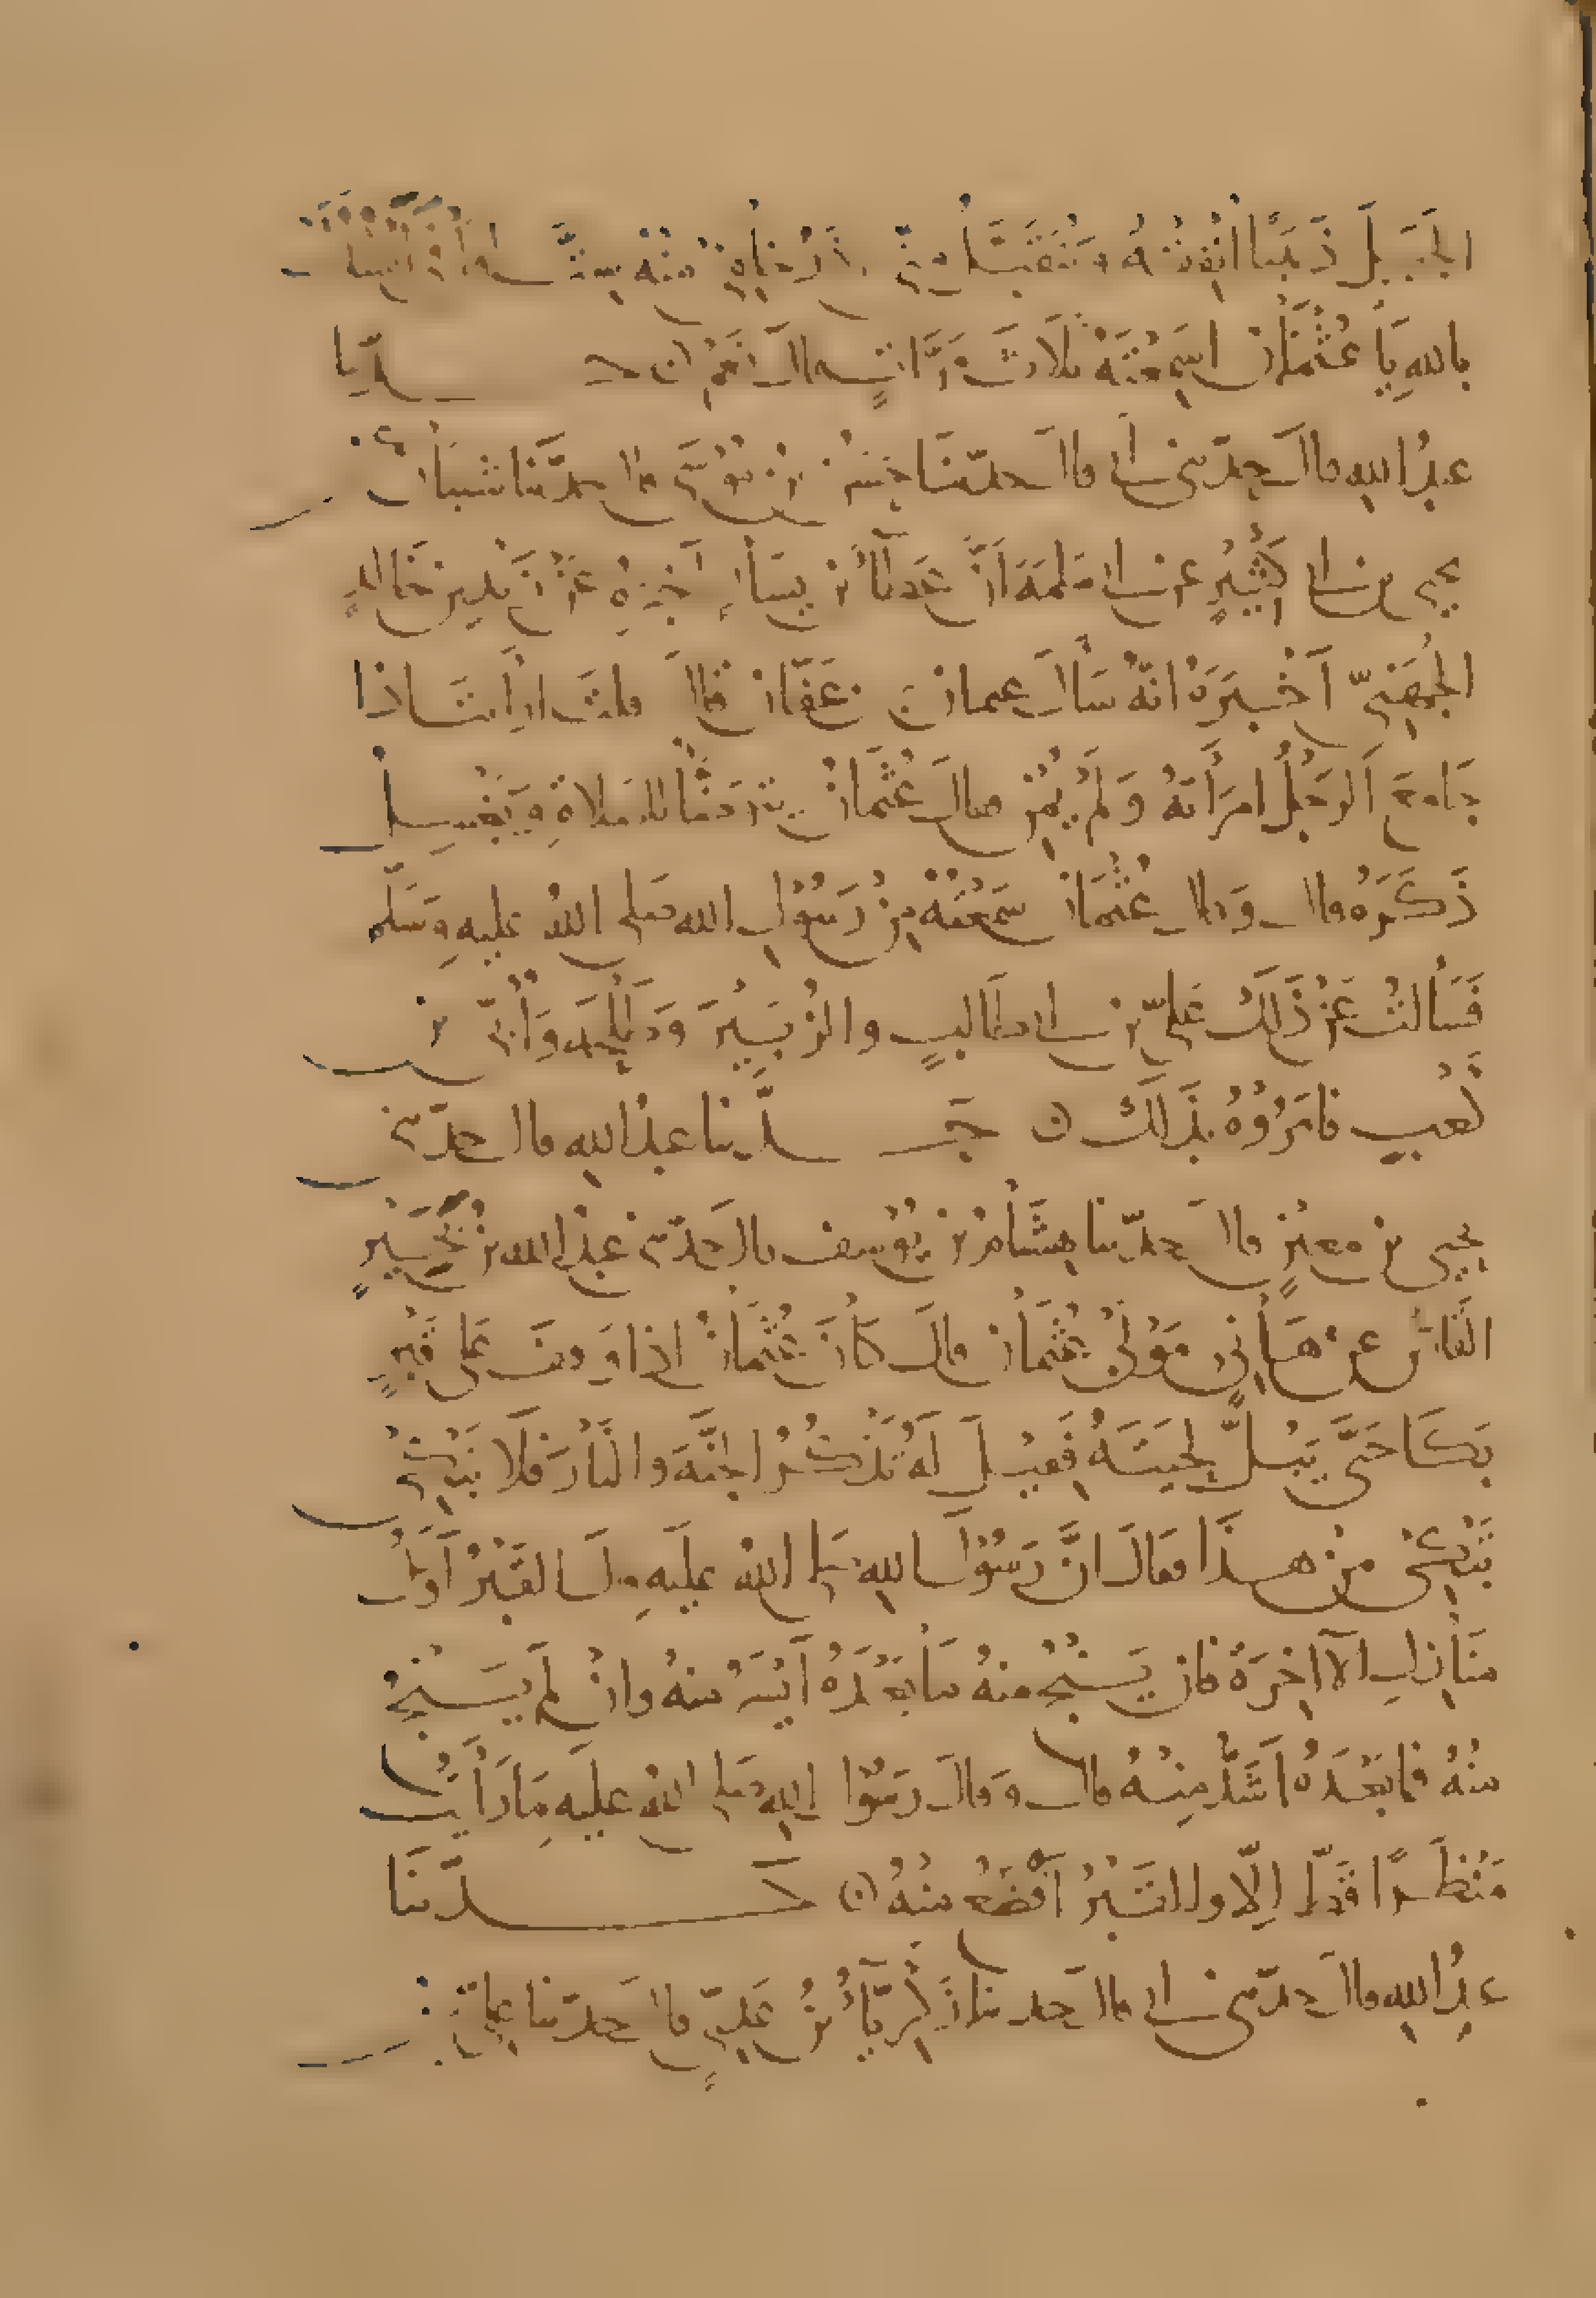 الجبل ذهبا انفقه ويتقبل مني اذر خلفي منه ست اواق انشدك
بالله يا عثمان اسمعته ثلاث مرات قال نعم ۞ حدثنا
عبد الله قال حدثني ابي قال حدثنا حسن بن موسى قال حدثنا شيبان عن
يحيى بن ابي كثير عن ابي سلمة ان عطاء بن يسار اخبره عن زيد بن خالد
الجهني اخبره انه سأل عثمان بن عفان قال قلت ارأيت اذا
جامع الرجل امرأته ولم يمن فقال عثمان يتوضأ للصلاة ويغسل
ذكره قال وقال عثمان سمعته من رسول الله صلى الله عليه وسلم
فسألت عن ذلك علي بن ابي طالب والزبير وطلحة وأبي بن
كعب فامروه بذلك ۞ حدثنا عبد الله قال حدثني
يحيى بن معين قال حدثنا هشام بن يوسف قال حدثني عبد الله بن بحير
القاص عن هانئ مولى عثمان قال كان عثمان اذا وقف على قبر
بكا حتى يبل لحيته فقيل له تذكر الجنة والنار فلا تبكي
تبكي من هذا فقال ان رسول الله صلى الله عليه وسلم قال القبر اول
منازل الآخرة فان ينج منه فما بعده أيسر منه وان لم ينج
منه فما بعده اشد منه قال وقال رسول الله صلى الله عليه ما رأيت
منظرا قط إلا والقبر أفظع منه ۞ حدثنا
عبد الله قال حدثني ابي قال حدثنا زكريا بن عدي قال حدثنا علي بن